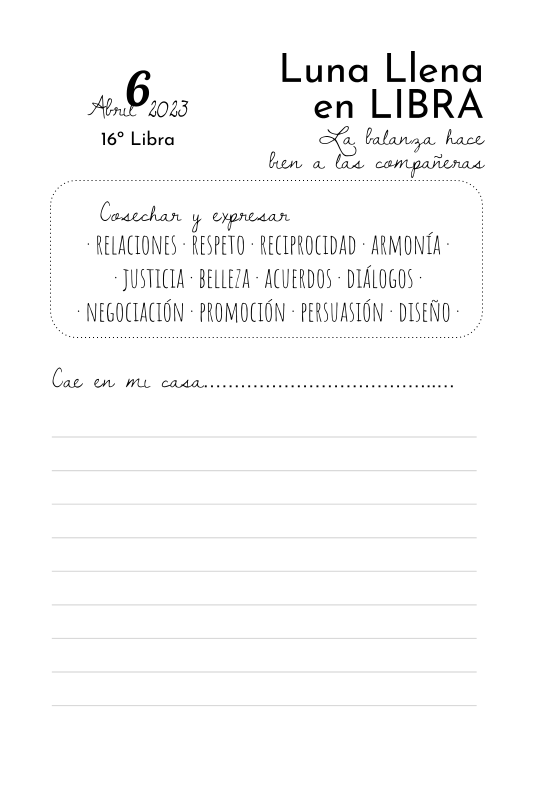 6
Abril 2023
16º Libra
Luna Llena
en LIBRA
La balanza hace
bien a las compañeras
Cosechar y expresar
· RELACIONES · RESPETO · RECIPROCIDAD · ARMONÍA ·
· JUSTICIA · BELLEZA · ACUERDOS · DIÁLOGOS ·
· NEGOCIACIÓN · PROMOCIÓN · PERSUASIÓN · DISEÑO ·
Cae en mi casa..........................................